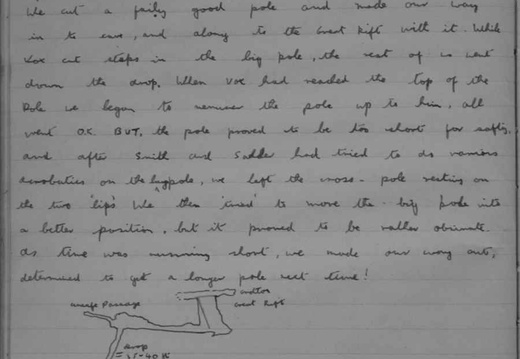 We cut a fairly good pole and made our way
in to cave, and along to the Great Rift with it. While
Vox cut steps in the big pole, the rest of us went
down the drop. When Vox had reached the top of the
Pole we began to the pole up to him, all
went O.K. BUT, the pole proved to be too short for safety,
and after Smith and Sadder had tried to do various
acrobatics on the big pole, we left the cross-pole resting on
the two 'lips' We then tried to move the big pole into
a better position, but it proved to be rather obstinate.
As time was running short, we made our way out,
determined to get a longer pole next time!
Passage
Great Rift
drop